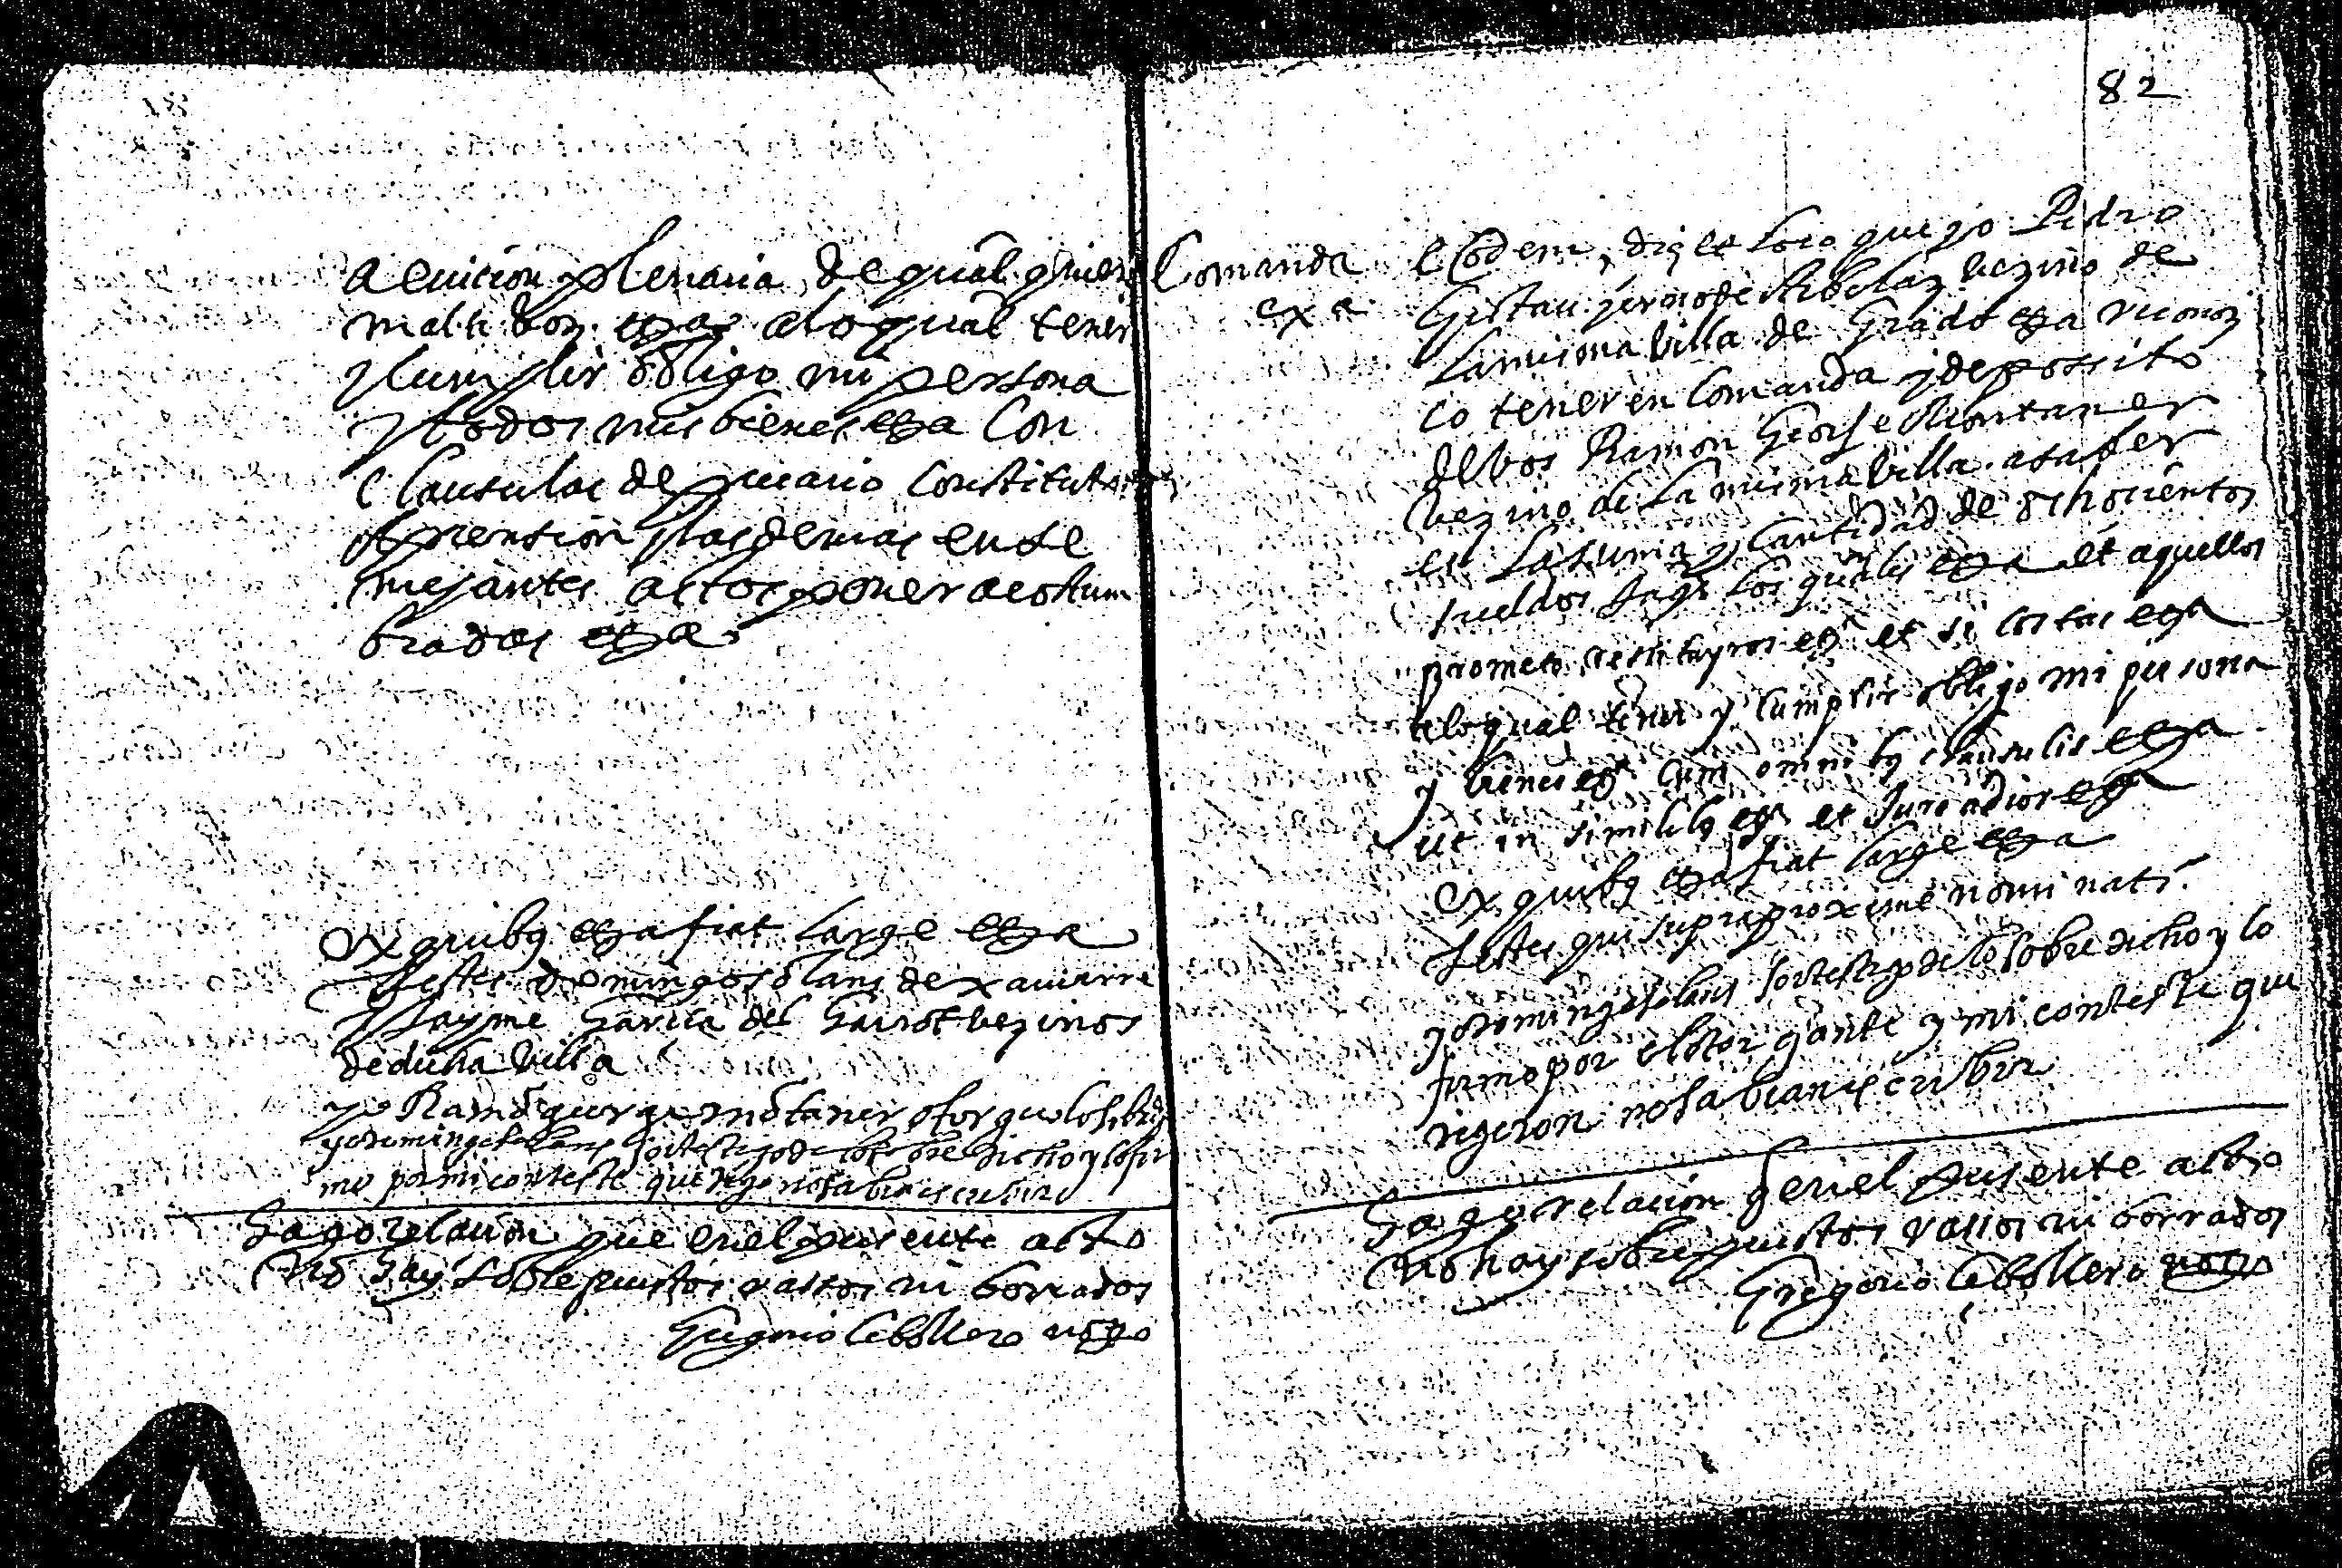 a euicion plenaria de qualquiere
mala voz etta a lo qual tener
y cumplir obligo mi persona
y todos mis bienes etta Con
Clausulas de precario Constituto
aprension y las demas en se
mejantes actos poner acostum
bradas etta
Ex quibus etta fiat large etta
Testes Domingo Solans de xauierre
y Jayme Garcia del Gairot vezinos
de dicha villa
yo Ramō gorge mōtaner otorgo lo sobredho
yo domingo solans soi testigo de lo sobre dicho y lo fir
me por mi conteste que dijo no sabia escribir
Hago relacion que en el presente acto
no hay sobrepuestos rassos ni borrados
Gregorio Cebollero noto
82
Comanda
exa
Eodem die et loco que yo Pedro
Gistau yerno de vezino de
la misma villa de Grado etta reconoz
co tener en Comanda y deposito
de vos Ramon George Montaner
vezino de la misma villa a saber
es la suma y cantidad de ochocientos
sueldos Jaqs los quales etta et aquellos
prometo restituyros etta et si costas etta
a lo qual tener y cumplir obligo mi persona
y bienes etta cum omnibus clausulis etta
ut in similibus etta et Juro a dios etta
Ex quibus etta fiat large etta
Testes qui supra proxime nominati
yo domingo solans soi testigo de lo sobre dicho y lo
firmo por el otorgante y mi conteste que
dijeron no sabian escribir
Hago relacion q en el presente acto
no hay sobrepuestos rassos ni borrados
Gregorio Cebollero noto